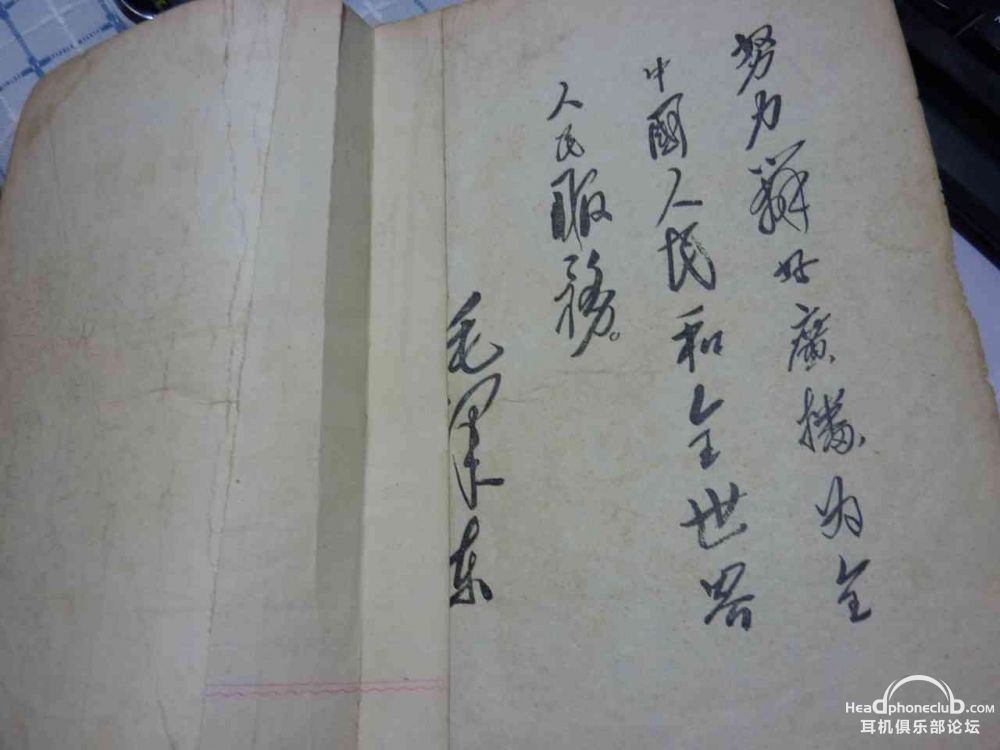 努力辦好廣播为全
中國人民和全世界
人民服務。
毛澤东
Headphoneclub.com
耳机俱乐部论坛